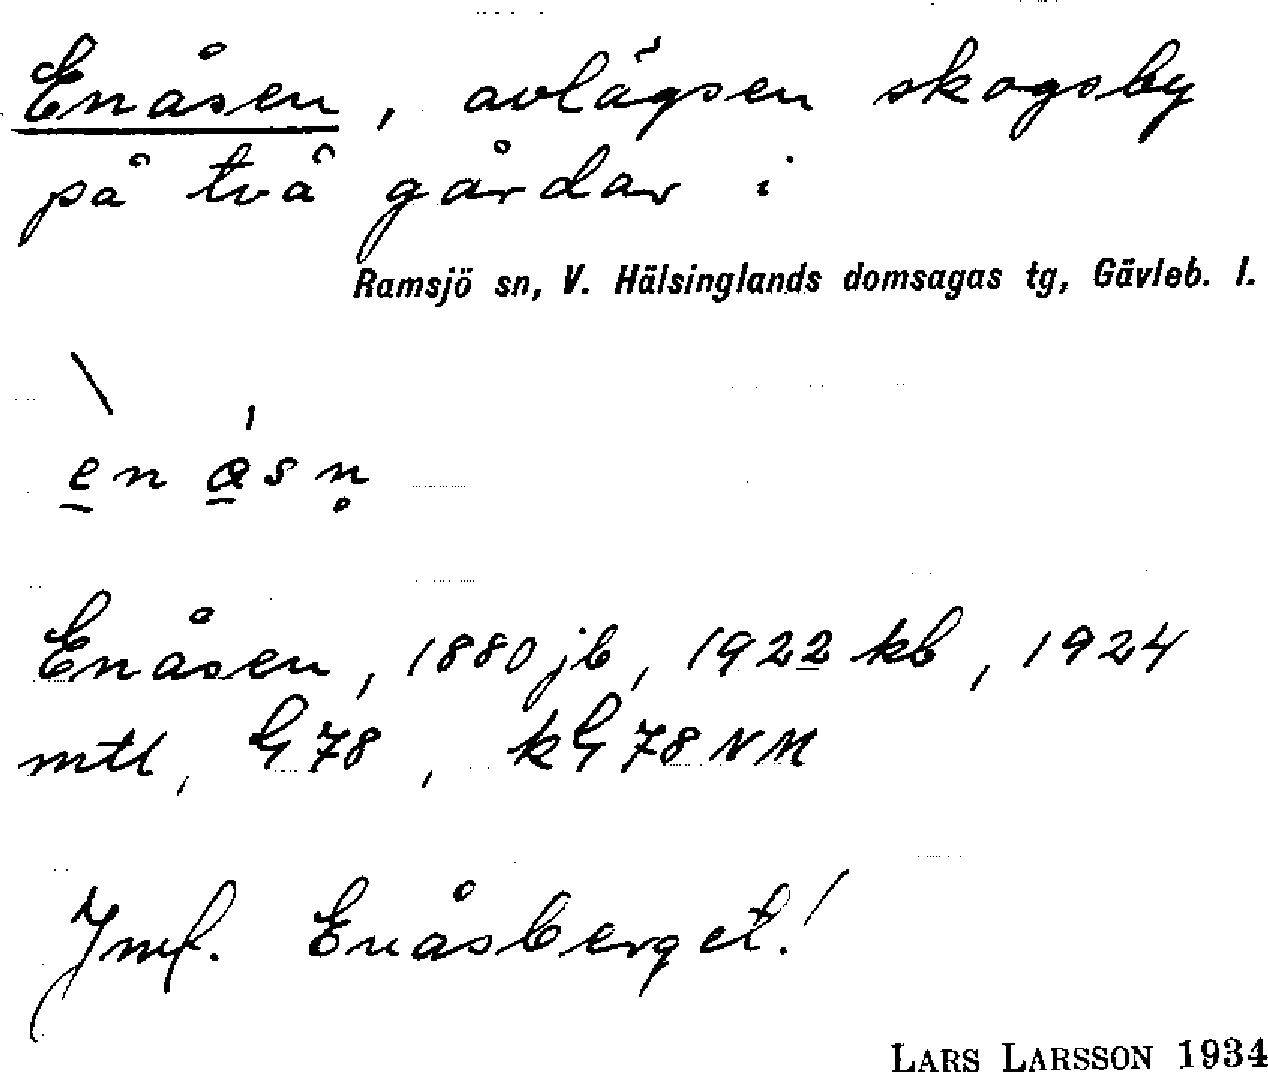 Enåsen, avlägsen skogsby
på två gårdar i
Ramsjö sn, V. Hälsinglands domsagas tg, Gävleb. l.
Enåsen, 1880 jb, 1922 kb, 1924
mtl, G 78, kG 78 NM
Jmf. Enåsberget!
LARS LARSSON 1934